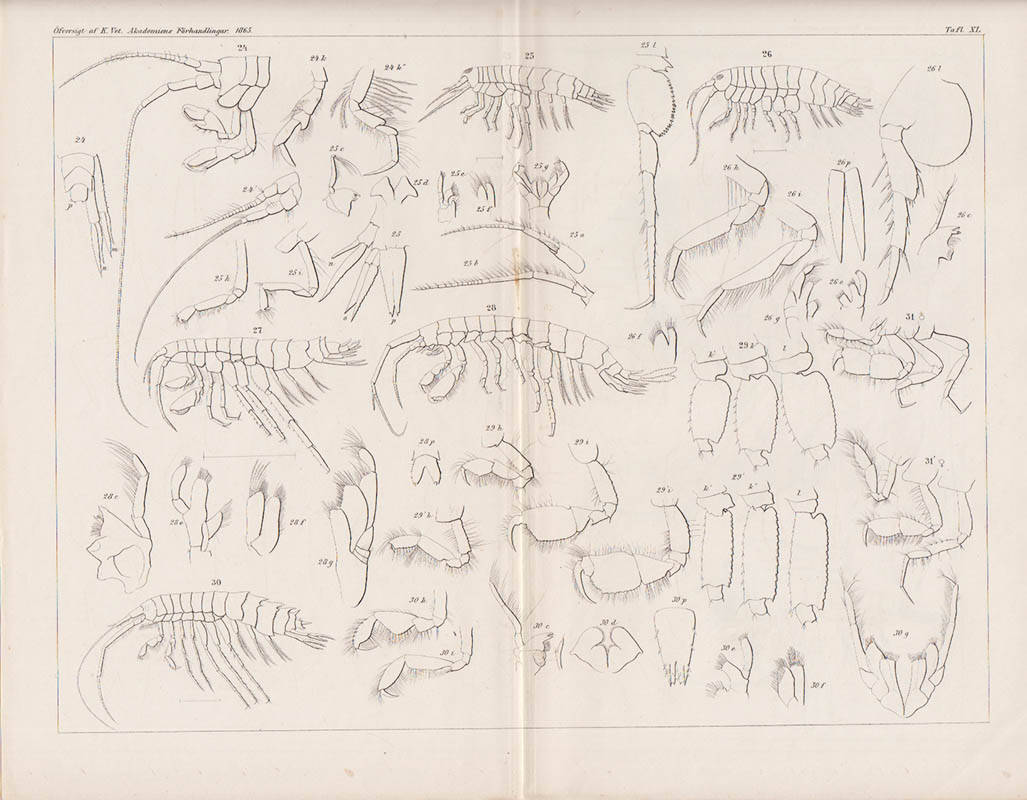 Öfversigt af K. Vet. Akademiens Förhandlingar. 1865.
Tafl. XL.
24
24 k
24 k"
25
25 l
26
26 l
24
p
m
n
24'
25 c
25 d
25 e
25 f
25 g
26 h
26 i
26 p
26 c
25 h
25 i
n
25
o
p
25 a
25 b
26 e
26 f
26 g
27
28
29 k
k'
l
31 ♂
28 c
28 e
28 f
28 g
28 p
29 h
29 i
29' h
29' i
29'
k'
k"
l
31' ♀
30
30 h
30 i
30 c
30 d
30 p
30 e
30 f
30 g